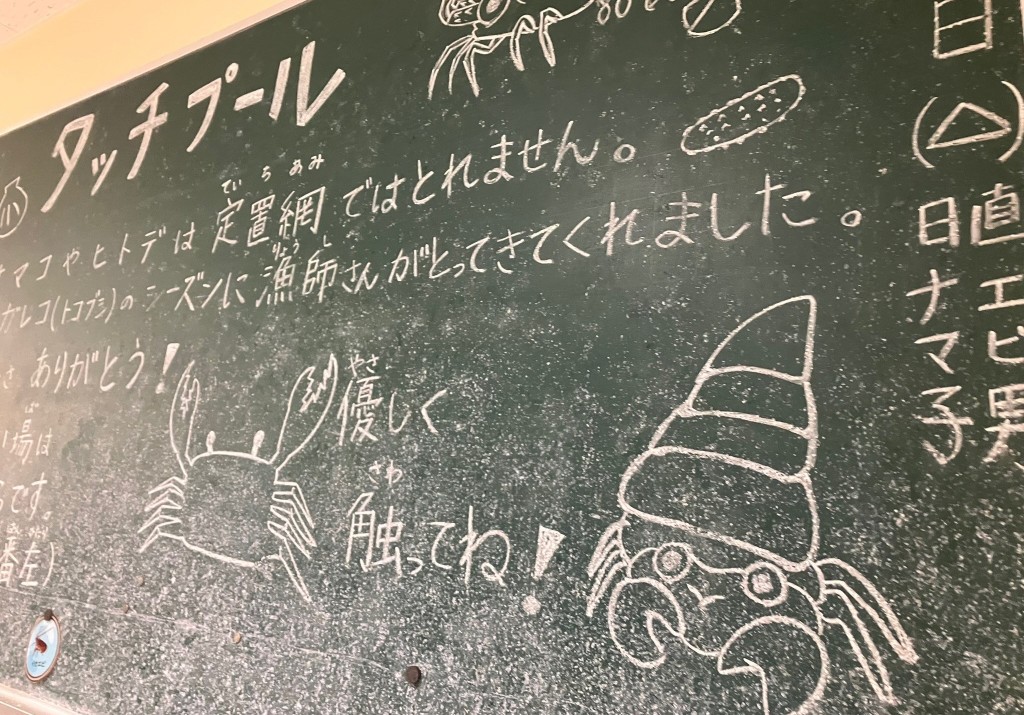 タッチプール
小
ていちあみ
マコやヒトデは定置網ではとれません。
りょうし
ガレコ(トコブシ)のシーズンに漁師さんがとってきてくれました。
ありがとう!
場は
です。
番左)
やさ
優しく
さわ
触ってね!
日
(△)
日直
ナマ子
エビ男